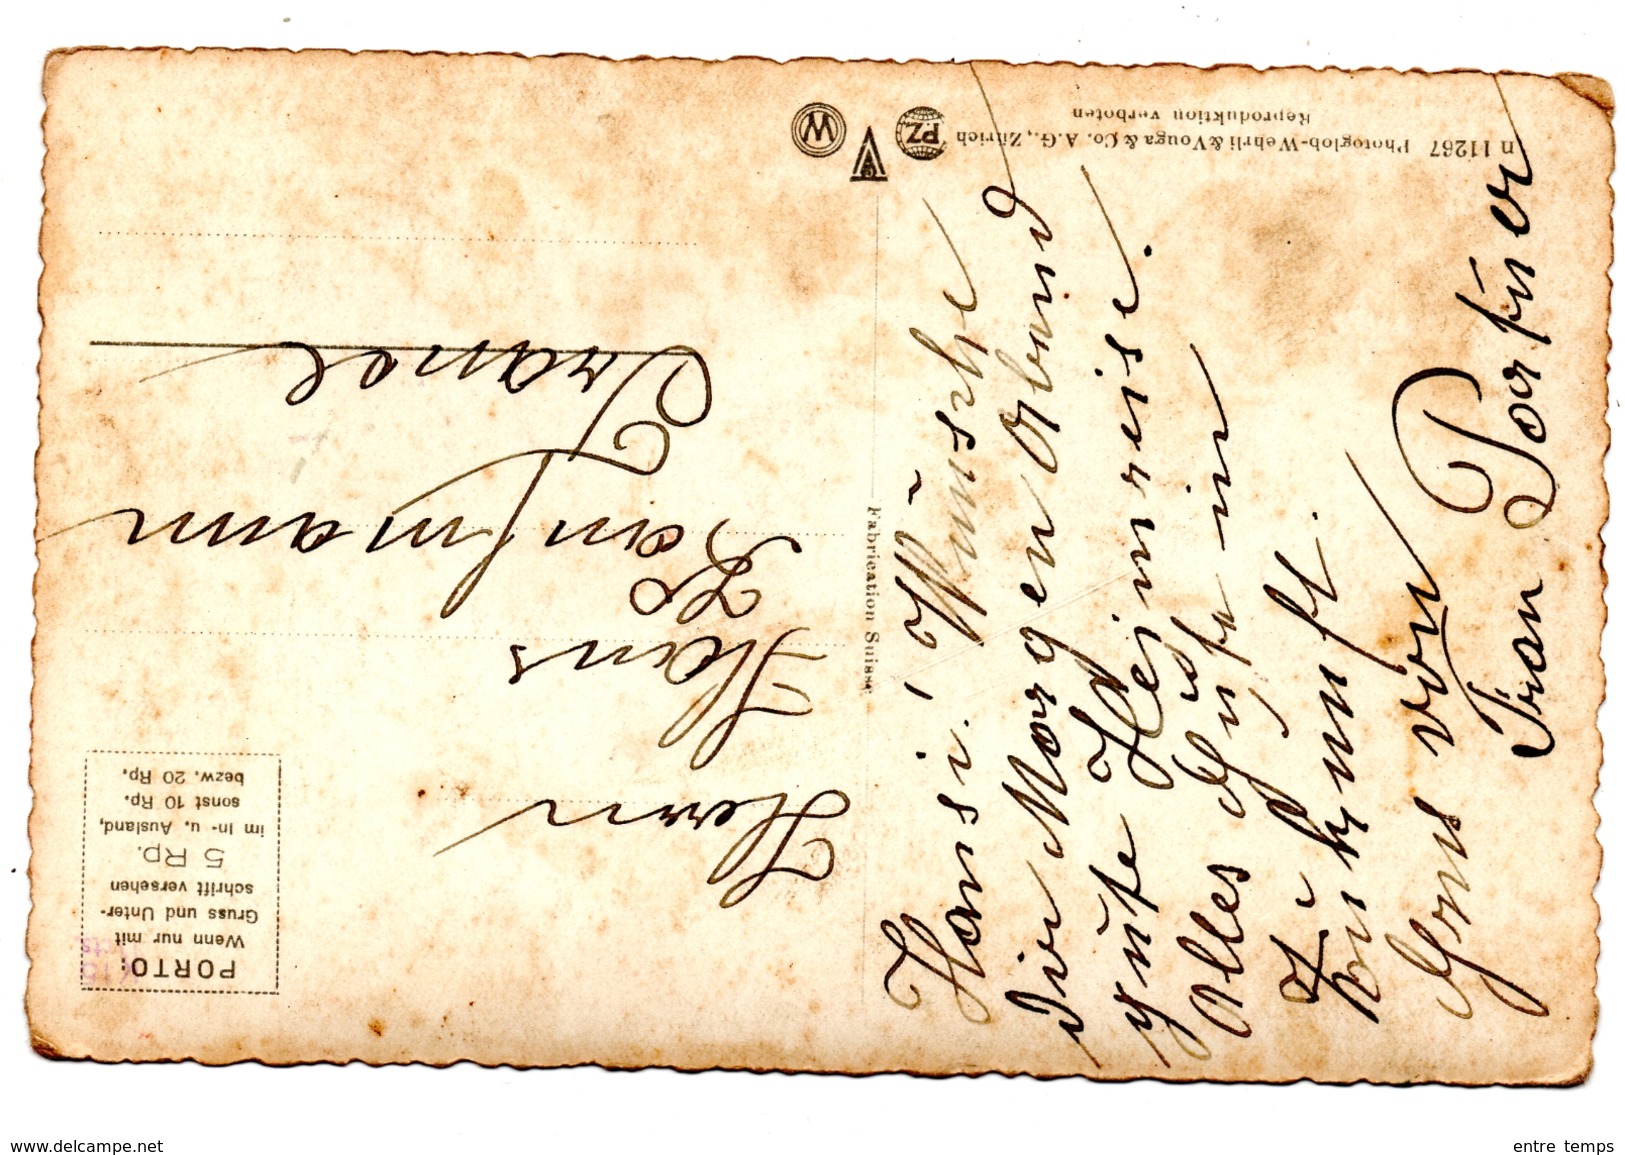 n 11267 Photoglob-Wehrli & Vouga & Co. A.G., Zürich
Reproduktion verboten
PZ
W
Fabrication Suisse
PORTO:
Wenn nur mit
Gruss und Unter-
schrift versehen
5 Rp.
im In- u. Ausland,
sonst 10 Rp.
bezw. 20 Rp.
Hansi! Wünsche
Dir Morgen Abend
gute Heimreise.
Alles Gute in
Zukunft.
Gruss von
Frau Porfüer
Herrn
Hans
Kaufmann
www.delcampe.net
entre temps